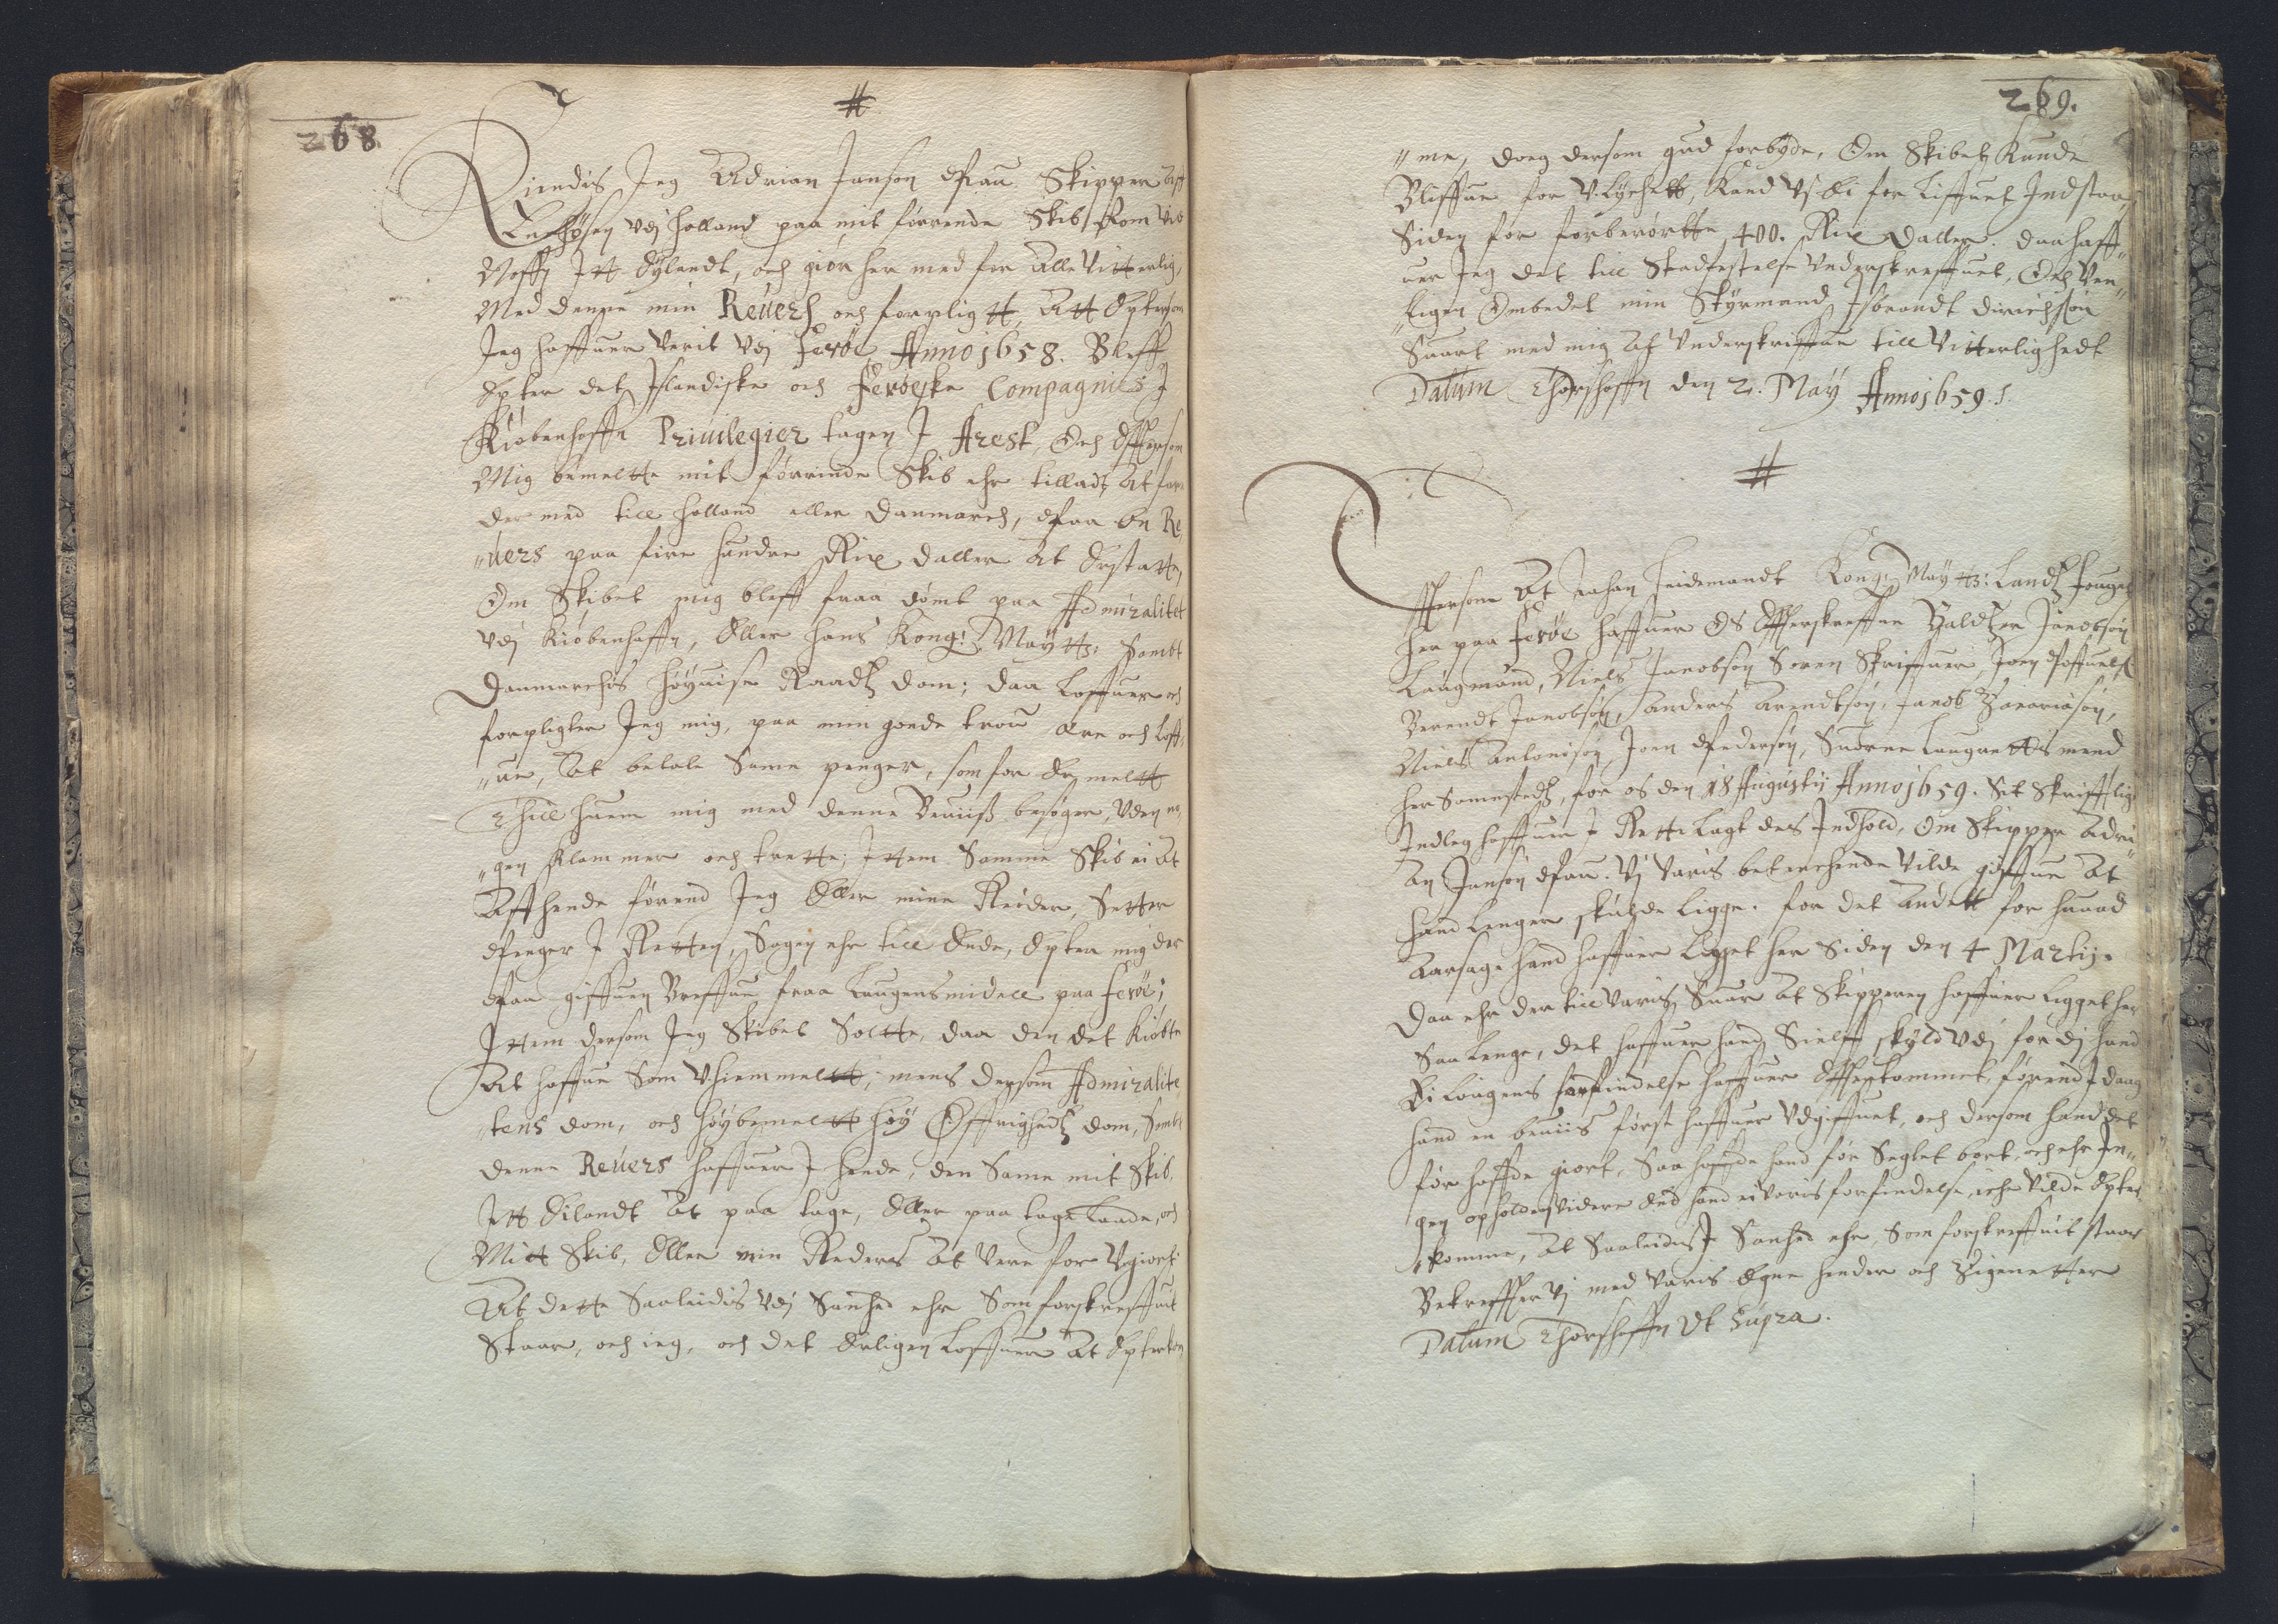 268.
#
Kiendis Jeg Adrian Janson Pfau Skipper aff
Enchøsen Vdj Holland paa mit førrende Skib som Ved
Noffn Itt Eylandt, och giør her med for Alle Vitterlig,
Med denne min Reuers och forpligtt, Att Epterson
Jeg haffuer Verit Vdj Ferøe Anno 1658. Bleff
Epter det Islandiske och Ferøeske Compagnies J
Kiøbenhaffn Priuilegier tagen J Arest, Och Effterson
Mig bemeltte mit førrinde Skib ehr tilladt at fare
der med till Holland eller Danmarch, Paa En Re
"uers paa fire hundre Rix daller at Erstatte,
Om Skibet mig bleff fraa dømt paa Admiralitet
Vdj Kiøbenhaffn, Eller hans Kong: Maytts: sambt
Danmarchis Høyuise Raadtz dom; daa Loffuer och
forpligter Jeg mig, paa min goede trou Ære och Loff,
"ue, At betale Samme penger, som for Er meltt
Thill huem mig med denne Beuiiss besøger, Vden no,
"gen klammer och trette; Ittem Samme Skib ei At
Affhende førend Jeg Eller mine Reider, Setter
Penger J Retten, Sagen ehr till Ende, Epter mig der
Paa giffuen Breffue fraa Laugens midell paa Ferøe;
Ittem dersom Jeg Skibet Soltte, daa den det Kiøbte
At haffue Som Vhiemmeltt; mens dersom Admiralite,
"tens dom, och Høybemeltt Høy Øffrighedtz dom, Sambt
denne Reuers haffuer J hende, den Same mit Skib,
Itt Eilandt At paa tage, Eller paa tage Laade, och
Mitt Skib, Eller min Reders At Vere for Vgiort;
At dette Saaleidis Vdj Sanhed ehr Som forskreffuit
Staar, och ieg, och det Erligen Loffuer At Epterkom,
269.
"me, doeg dersom gud forbyde, Om Skibet Kunde
Bliffue for Vlychett, Kand Vj Ei for Liffuet Indstaa,
Siden for forberørtte 400. Rix Daller. daa haff"
uer Jeg det till Stadfestelse Vnderskreffuet, Och Ven"
"ligen Ombedet min Styrmand Isbrandt Dirichson
Suart med mig At Vnderskriffue till Vitterlighedt
Datum Thorshaffn den 2. May Anno 1659.
#
Effterson At Johan Heidemandt Kong: Maytts: Landtz fouget
her paa Ferøe haffuer Os Effterskreffne Baldtzer Jacobsøn
Laugmand, Niels Jacobsøn Soren Skriffuer, Joen Poffuels,
Berendt Jacobsøn, Anders Arendtsøn, Jacob Zacariasøn,
Niels Antonisøn, Joen Pedersøn, Suorne Laugrettis mend
her Sammestedtz, for os den 18 Augustij Anno 1659. Sit Skrifftlig
Indleg haffuer J Rette Lagt des Indhold, Om Skipper Adri"
an Janson Pfau. Vj Varis betenchende Vilde giffue At
hand Lenger skulde Ligge. for det Andett for huaad
Aarsage hand haffuer Ligget her Siden den 4 Martij.
Daa ehr der till Varis Suar At Skipperen haffuer Ligget her
Saa Lenge, det haffuer hand Sielff skyld Vdj for dj hand
Ei Lougens forfindelse haffuer Effterkommet, førend J daag
hand en beuiis først haffuer Vdgiffuet, och dersom hand det
før haffde giort, Saa haffde hand før Seglet bort, och ehr In"
gen opholden Videre End hand ei Varis forfindelse iche Vilde Epter
"komme, At Saaleidis J Sanhed ehr, Som forskreffuit staar
Bekreffter Vj med Varis Egne hender och Zigenetter
Datum Thorshaffn Vt Supra.